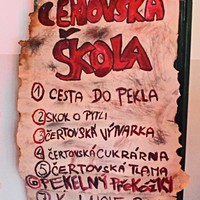 ČERTOVSKÁ
ŠKOLA
1 CESTA DO PEKLA
2 SKOK O PYTLI
3 ČERTOVSKÁ VÝVARKA
4 ČERTOVSKÁ CUKRÁRNA
5 ČERTOVSKÁ TLAMA
6 PEKELNÝ PŘEKÁŽKY